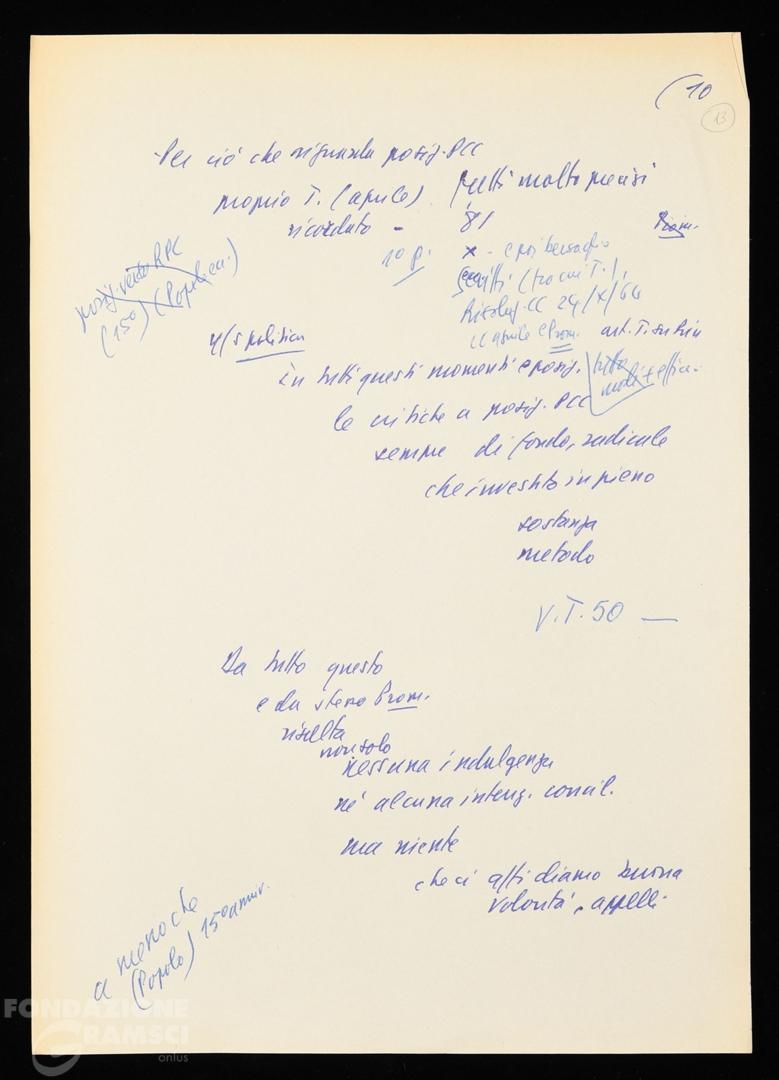 (10
13
Per ciò che riguarda posiz. PCC
proprio T. (aprile). fatti molto precisi
ricordato - '81
Prom.
1º p. x - e poi bersaglio
scritti (tra cui T.),
posiz. verso RPC
(15º) (Popolo cu.)
Risoluz. CC 24/X/64
CC aprile e Prom. art. T. su Rin
4/5 politica
in tutti questi momenti e posiz.
le critiche a posiz. PCC
sempre di fondo, radicale
che investito in pieno
sostanza
metodo
V.T. 50 —
Da tutto questo
e da stesso Prom.
risulta
non solo
nessuna indulgenza
né alcuna intenz. concil.
ma niente
che ci affidiamo buona
volontà, appelli
a meno che
(Popolo) 15º anniv.
FONDAZIONE
GRAMSCI
onlus